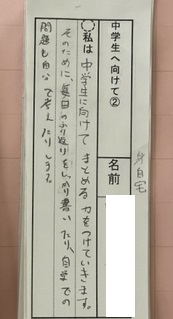 中学生へ向けて②
名前
私は中学生に向けてまとめる力をつけていきます。
そのために、毎日のふり返りをしっかり書いたり、自学での
問題も自分で考えたりします。